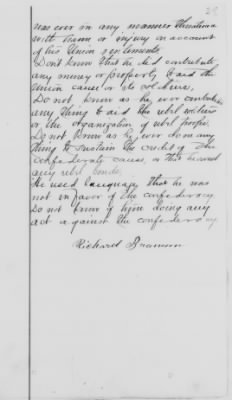 29
was ever in any manner threatened
with harm or injury on account
of his Union sentiments.
Dont know that he did contribute
any money or property to aid the
Union cause or its soldiers,
Do not know as he ever contributed
any thing to aid the rebel soldiers
or the organization of rebel
Do not know as he ever done any
thing to sustain the credit of the
confederate cause, or that he owned
any rebel bonds.
He used language that he was
not in favor of the confederacy
Do not know of him doing any
act against the confederacy
Richard